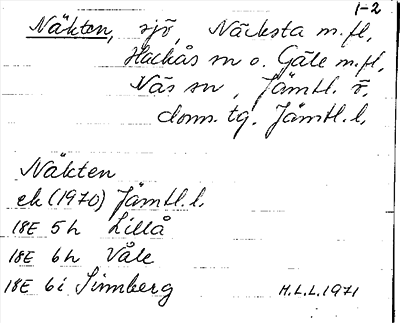 1-2
Näkten, sjö, Näcksta m.fl,
Hackås sn o. Gåle m.fl,
Näs sn, Jämtl. ö.
doms. tg. Jämtl. l.
Näkten
ek (1970) Jämtl. l.
18E 5h Lillå
18E 6h Våle
18E 6i Sinnberg H.L.L. 1971